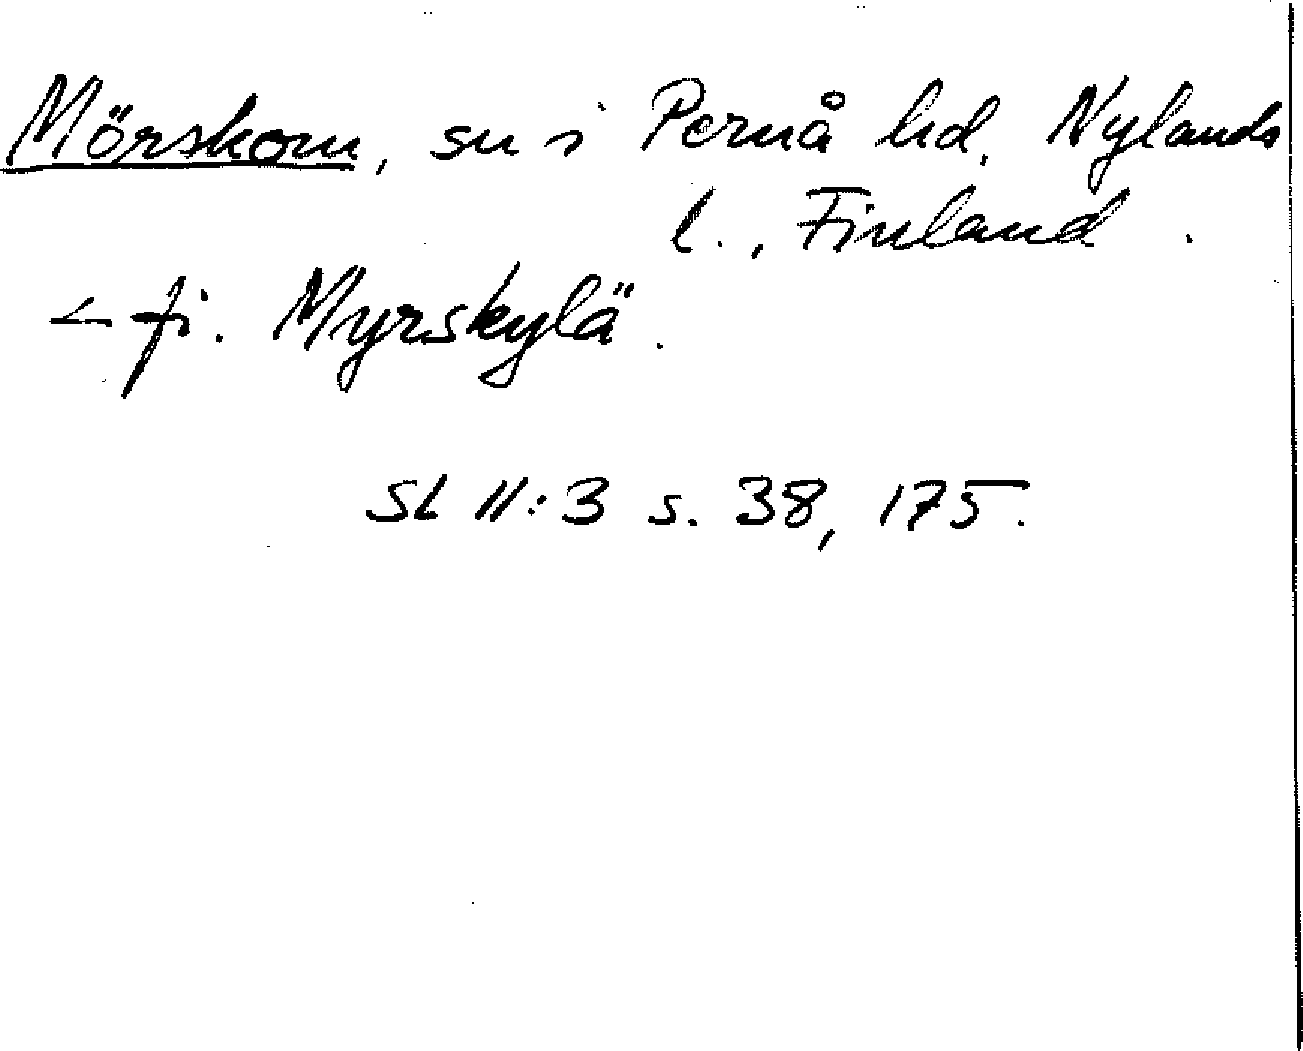 Mörskom, sn i Pernå hd, Nylands
l., Finland.
< fi. Myrskylä.
SL II:3 s. 38, 175.